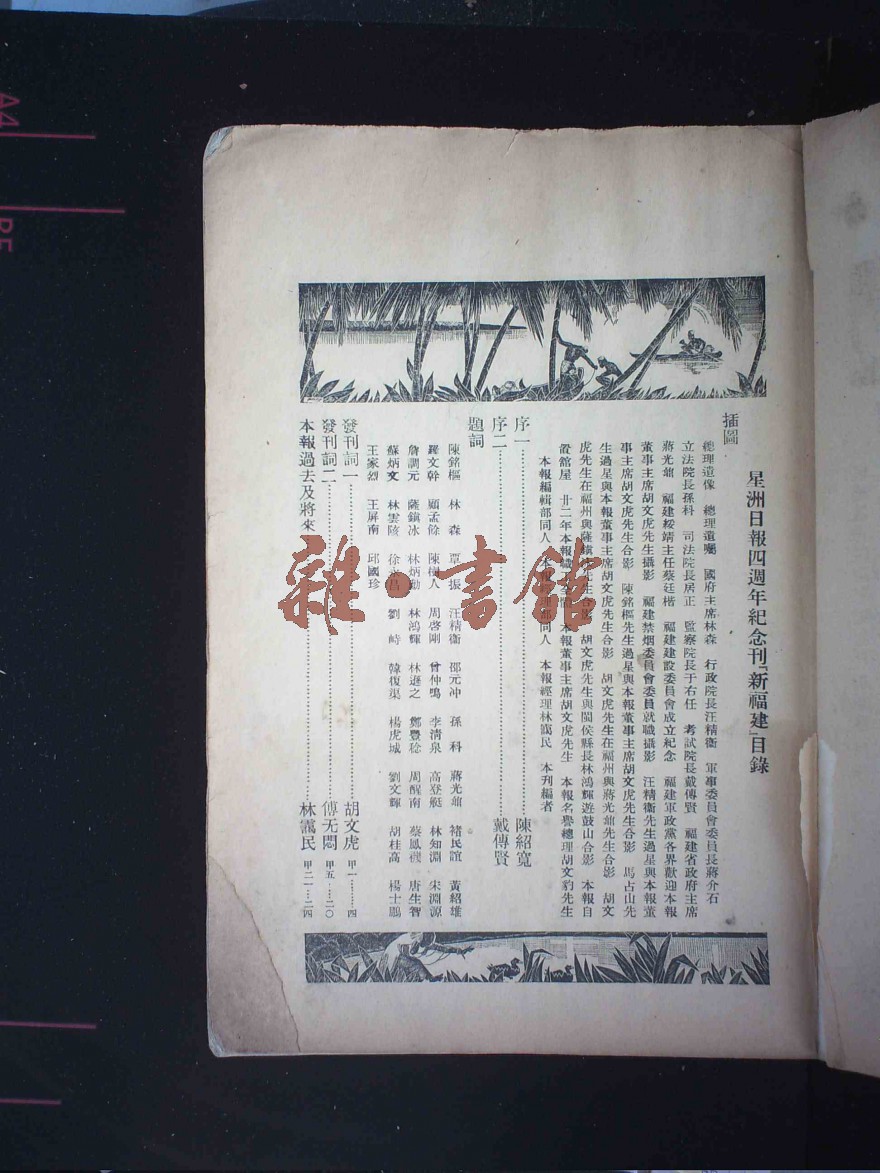 星洲日報四週年紀念刊「新福建」目錄
插圖
總理遺像 總理遺囑 國府主席林森 行政院長汪精衞 軍事委員會委員長蔣介石
立法院長孫科 司法院長居正 監察院長于右任 考試院長戴傳賢 福建省政府主席
蔣光鼐 福建綏靖主任蔡廷楷 福建建設委員會成立紀念 福建軍政黨各界歡迎本報
董事主席胡文虎先生攝影 福建禁烟委員會委員就職攝影 汪精衞先生過星與本報董
事主席胡文虎先生合影 陳銘樞先生過星與本報董事主席胡文虎先生合影 馬占山先
生過星與本報董事主席胡文虎先生合影 胡文虎先生在福州與蔣光鼐先生合影 胡文
虎先生在福州與薩鎮冰先生合影 胡文虎先生與閩侯縣長林鴻輝遊鼓山合影 本報自
置舘屋 廿二年本報職 本報董事主席胡文虎先生 本報名譽總理胡文豹先生
本報編輯部同人 本報經理部同人 本報經理林靄民 本刊編者
序一……陳紹寬
序二……戴傳賢
題詞
陳銘樞 林森 覃振 汪精衞 邵元冲 孫科 蔣光鼐 褚民誼 黃紹雄
羅文幹 顧孟餘 陳樹人 周啓剛 曾仲鳴 李清泉 高登艇 林知淵 宋淵源
詹調元 薩鎮冰 林炳勳 林鴻輝 林遜之 鄭豐稔 周醒南 蔡鳳禨 唐生智
蘇炳文 林雲陔 徐永昌 劉峙 韓復榘 楊虎城 劉文輝 胡桂高 楊士鵬
王家烈 王屏南 邱國珍
發刊詞一……胡文虎 甲一……四
發刊詞二……傅无悶 甲五……二〇
本報過去及將來……林靄民 甲二一……二四
A4
雜·書館